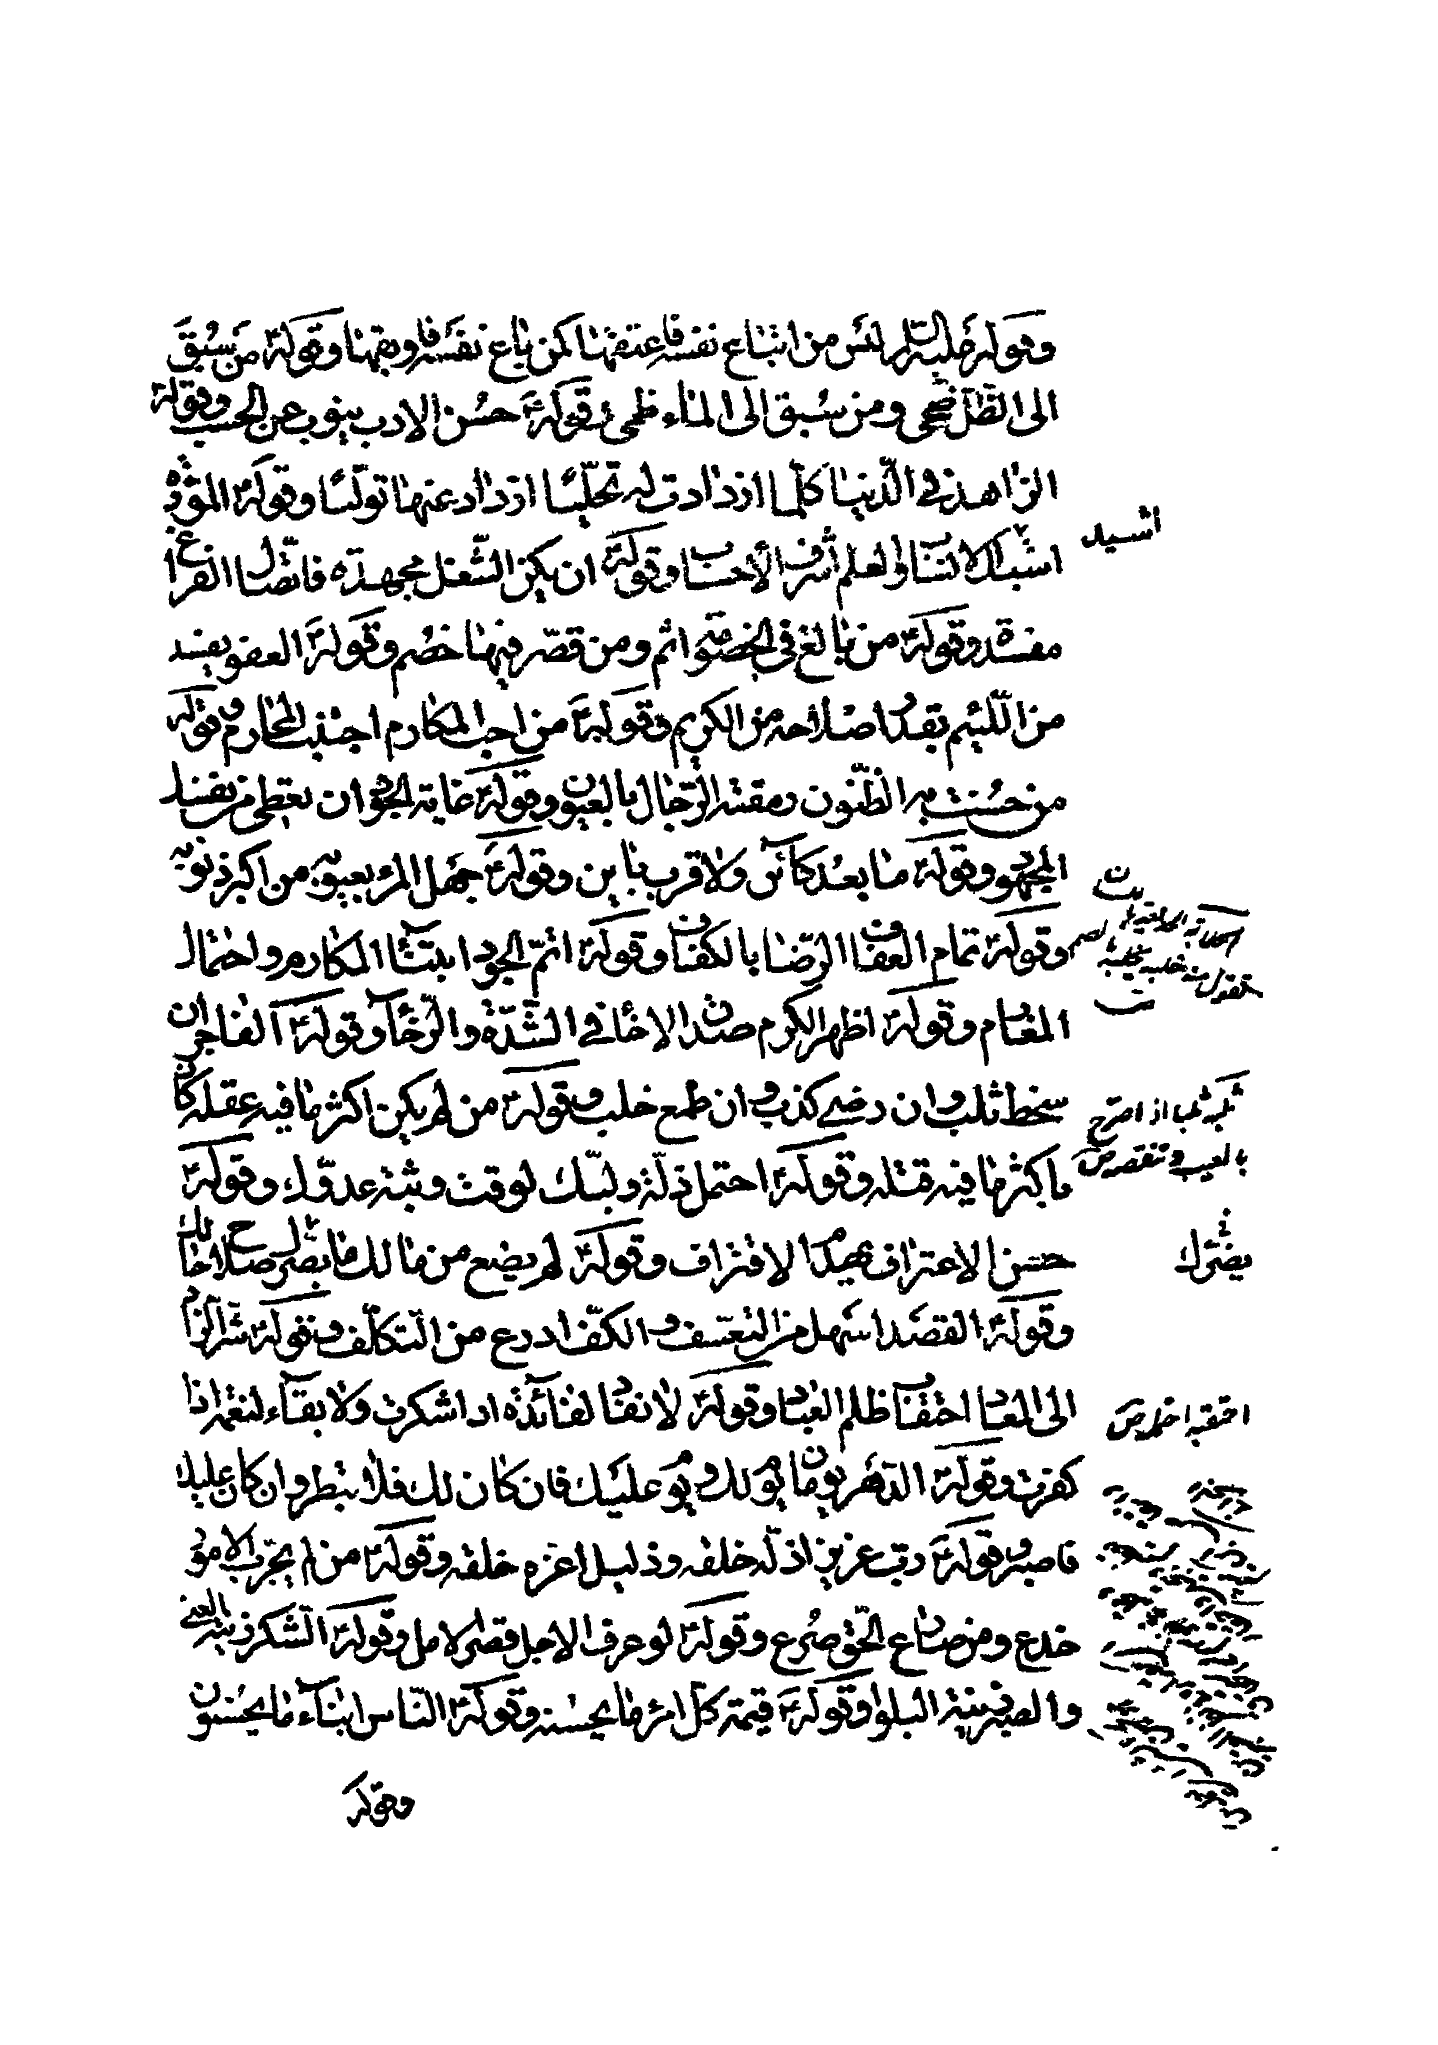 وقوله عليه السلام ليس من ابتاع نفسه فاعتقها كمن باع نفسه فاوبقها وقوله من سبق
الى الظل ضحى ومن سبق الى الماء ظمئ وقوله حسن الادب ينوب عن الحسب وقوله
الزاهد في الدنيا كلما ازدادت له تحليا ازداد عنها توليا وقوله المودة
اشبك الانساب والعلم اشرف الاحساب وقوله ان يكن الشغل مجهدة فاتصال الفراغ
مفسدة وقوله من بالغ في الخصومة اثم ومن قصر فيها خصم وقوله العفو يفسد
من اللئيم بقدر اصلاحه من الكريم وقوله من احب المكارم اجتنب المحارم وقوله
من حسنت به الظنون رمقته الرجال بالعيون وقوله غاية الجود ان تعطي من نفسك
المجهود وقوله ما بعد كائن ولا قرب باين وقوله جهل المرء بعيوبه من اكبر ذنوبه
وقوله تمام العفاف الرضا بالكفاف وقوله اتم الجود ابتناء المكارم واحتمال
المغارم وقوله اظهر الكرم صدق الاخاء في الشدة والرخاء وقوله الفاجر ان
سخط ثلب وان رضي كذب وان طمع خلب وقوله من لم يكن اكثر ما فيه عقله كان
باكثر ما فيه قتله وقوله احتمل زلة وليك لوقت وثبة عدوك وقوله
حسن الاعتراف يهدم الاقتراف وقوله لم يضع من مالك ما بصرك صلاح حالك
وقوله القصد اسهل من التعسف والكف اودع من التكلف وقوله شر الزاد
الى المعاد احتقاب ظلم العباد وقوله لا نفاد لفائدة اذا شكرت ولا بقاء لنعمة اذا
كفرت وقوله الدهر يومان يوم لك ويوم عليك فان كان لك فلا تبطر وان كان عليك
فاصبر وقوله رب عزيز اذله خلقه وذليل اعزه خلقه وقوله من لم يجرب الامور
خدع ومن صارع الحق صرع وقوله لو عرف الاجل قصر الامل وقوله الشكر زينة الغنى
والصبر زينة البلوا وقوله قيمة كل امرئ ما يحسنه وقوله الناس ابناء ما يحسنون
وقوله
اشبك
ثلبه ثلبا اذا صرح
بالعيب وتنقصه ص
يضرك
احتقبه احمله ص